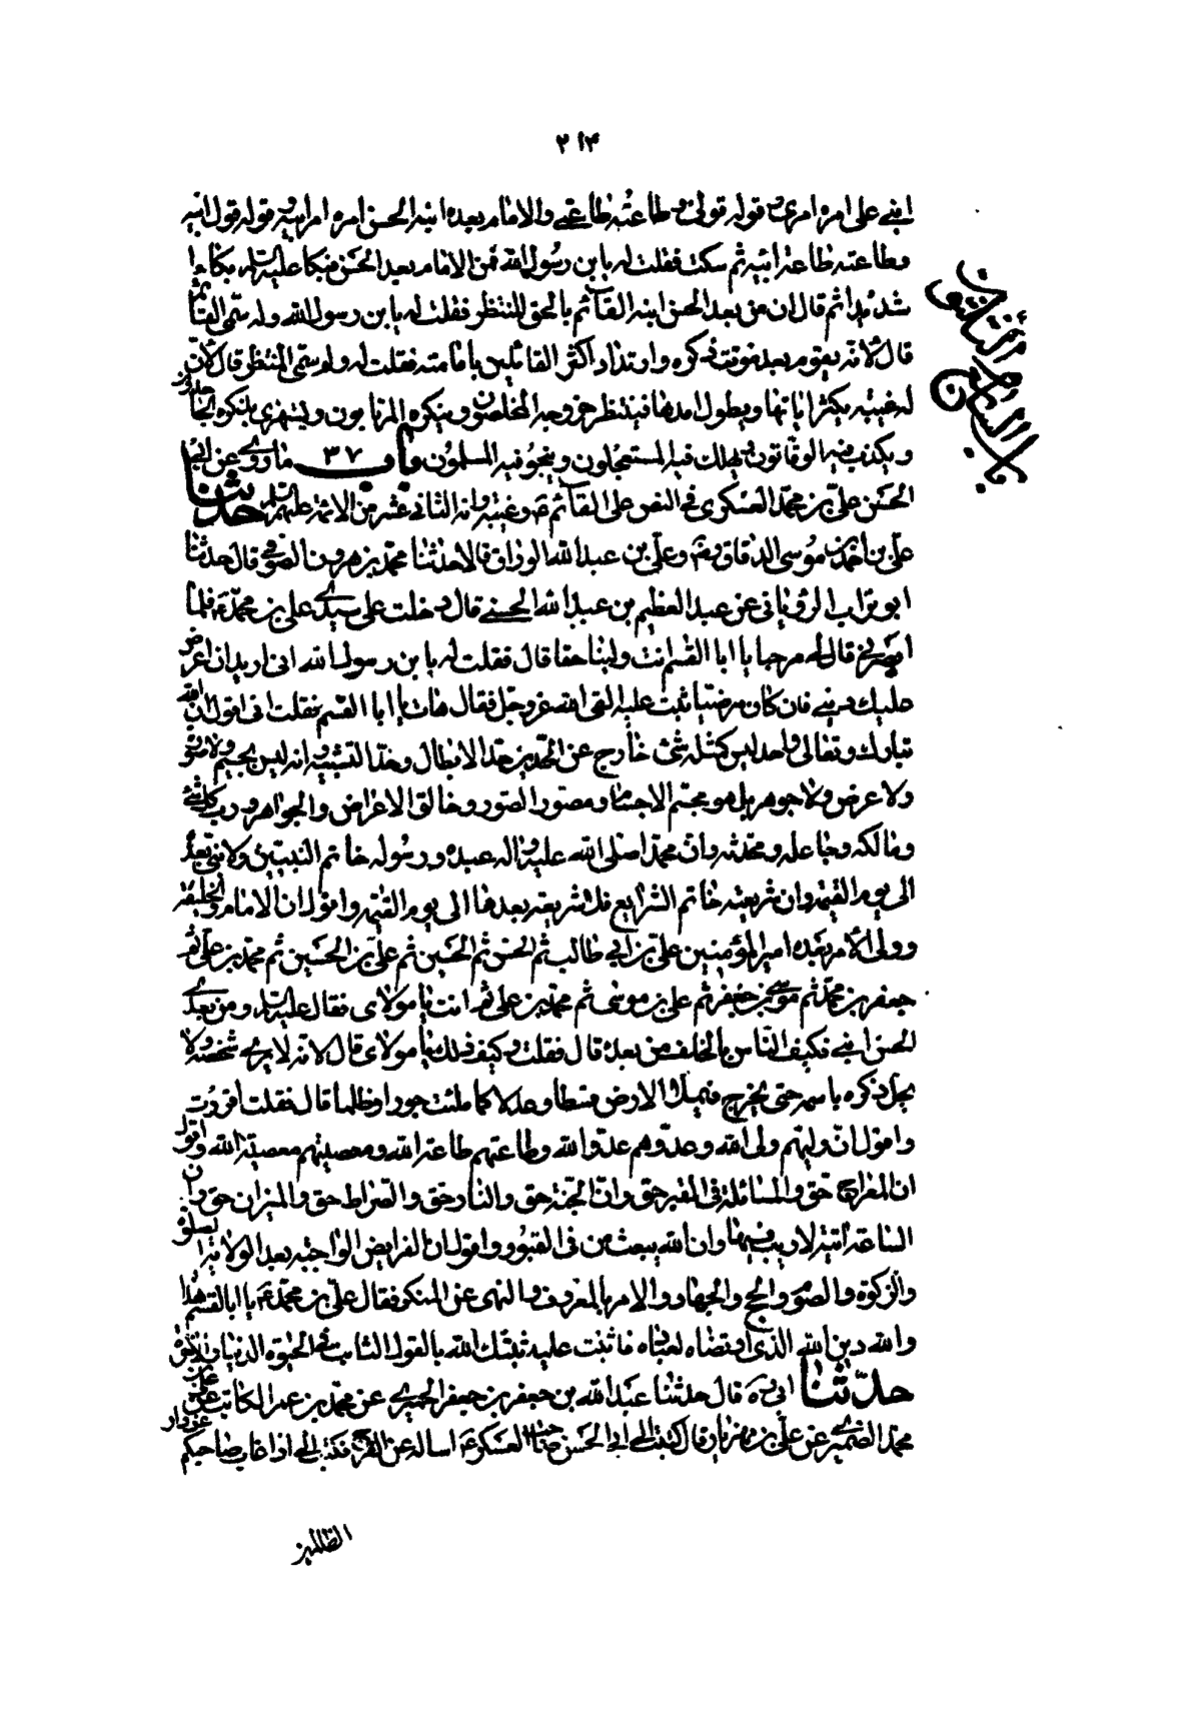 ٢١٤
ابني علي امره امري و قوله قولي و طاعته طاعتي والامام بعده ابنه الحسن امره امر ابيه و قوله قول ابيه
و طاعته طاعة ابيه ثم سكت فقلت له يا بن رسول الله فمن الامام بعد الحسن فبكا عليه السلام بكاءا
شديدا ثم قال ان من بعد الحسن ابنه القائم بالحق المنتظر فقلت له يا بن رسول الله وله سمّى القائم
قال لانه يقوم بعد موت ذكره وارتداد اكثر القائلين بامامته فقلت له ولم سمّى المنتظر قال لانّ
له غيبته يكثر ايامها و يطول امدها فينتظر خروجه المخلصون و ينكره المرتابون و يستهزئ بذكره الجاحدون
و يكذب فيه الوقاتون و يهلك فيه المستعجلون و ينجو فيه المسلمون باب ٣٧ ما روى عن ابي
الحسن علي بن محمد العسكري في النص على القائم و غيبته و انه الثاني عشر من الائمة عليهم السلام حدثنا
علي بن احمد بن موسى الدقاق رض وعلي بن عبد الله الوراق قالا حدثنا محمد بن هرون الصوفي قال حدثنا
ابو تراب الروياني عن عبد العظيم بن عبد الله الحسني قال دخلت على سيدي علي بن محمد ع فلما
ابصرني قال لي مرحبا يا ابا القسم انت ولينا حقا قال فقلت له يا بن رسول الله اني اريد ان اعرض
عليك ديني فان كان مرضيا ثبت عليه القى الله عز و جل فقال هات يا ابا القسم فقلت اني اقول ان الله
تبارك وتعالى واحد ليس كمثله شئ خارج عن الحدّين حدّ الابطال وحدّ التشبيه و انه ليس بجسم ولا صورة
ولا عرض ولا جوهر بل هو مجسّم الاجسام و مصوّر الصور و خالق الاعراض والجواهر و ربّ كل شئ
و مالكه و جاعله و محدثه و ان محمدا صلى الله عليه و اله عبده و رسوله خاتم النبيين ولا نبي بعده
الى يوم القيمة و ان شريعته خاتم الشرايع فلا شريعة بعدها الى يوم القيمة و اقول ان الامام والخليفة
و ولي الامر بعده امير المؤمنين علي بن ابي طالب ثم الحسن ثم الحسين ثم علي بن الحسين ثم محمد بن علي ثم
جعفر بن محمد ثم موسى بن جعفر ثم علي بن موسى ثم محمد بن علي ثم انت يا مولاي فقال عليه السلام و من بعدي
الحسن ابني فكيف للناس بالخلف من بعده قال فقلت و كيف ذلك يا مولاي قال لانه لا يرى شخصه ولا
يحل ذكره باسمه حتى يخرج فيملأ الارض قسطا و عدلا كما ملئت جورا و ظلما قال فقلت اقررت
و اقول ان وليهم ولي الله و عدوهم عدو الله و طاعتهم طاعة الله و معصيتهم معصية الله و اقول
ان المعراج حق والمسائلة في القبر حق و ان الجنة حق و النار حق و الصراط حق والميزان حق و ان
الساعة اتية لا ريب فيها و ان الله يبعث من في القبور و اقول ان الفرايض الواجبة بعد الولاية الصلوة
والزكوة والصوم والحج والجهاد والامر بالمعروف والنهي عن المنكر فقال علي بن محمد ع يا ابا القسم هذا
والله دين الله الذي ارتضاه لعباده فاثبت عليه ثبتك الله بالقول الثابت في الحيوة الدنيا و الاخرة
حدثنا ابي ره قال حدثنا عبد الله بن جعفر بن جعفر الحميري عن محمد بن عمر الكاتب عن علي بن
محمد الصيمري عن علي بن مهزيار قال كتبت الى ابي الحسن صاحب العسكر ع اساله عن الفرج فكتب الي اذا غاب صاحبكم عن دار
الظالمين